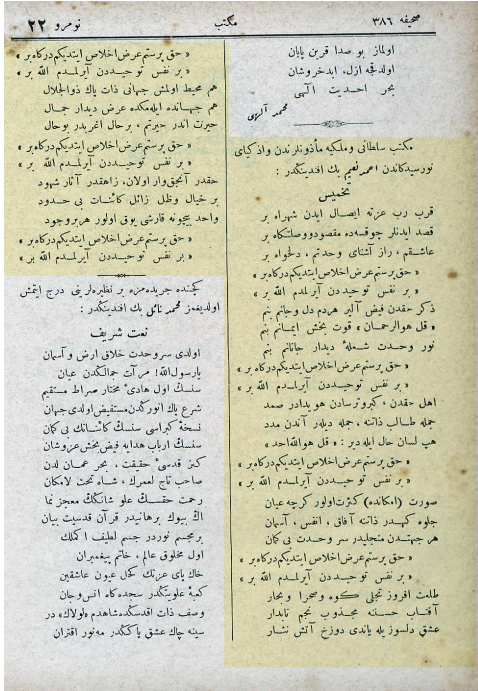 صحيفه ٣٨٦
مكتب
نومرو ٢٢
اولماز بو صدا قرين پايان
اولدقجه ازل، ابد خروشان
بحر احديت الٓهى
محمد آلهى
مكتب سلطانى وملكيه مأذونلرندن واذكياى
نورسيدكاندن احمد نعيم بك افندينكدر :
تخميس
قرب رب عزته ايصال ايدن شهراه بر
قصد ايدنلر چوقسه ده مقصود ووصلتكاه بر
عاشقم ، راز آشناى وحدتم ، دلخواه بر
« حق پرستم عرض اخلاص ايتديكم دركاه بر »
« بر نفس توحيددن آيرلمدم الله بر »
ذكر حقدن فيض آلير هردم دل وجانم بنم
« قل هو الرحمان » قوت بخش ايمانم بنم
نور وحدت شعلهٔ ديدار جانانم بنم
« حق پرستم عرض اخلاص ايتديكم دركاه بر »
« بر نفس توحيددن آيرلمدم الله بر »
اهل حقدن ، كبروترسادن هويدادر صمد
جمله طالب ذاتنه ، جمله ديلر آندن مدد
هب لسان حال ايله دير : « قل هو الله احد »
« حق پرستم عرض اخلاص ايتديكم دركاه بر »
« بر نفس توحيددن آيرلمدم الله بر »
صورت (امكانده) كثرت اولور كرچه عيان
جلوه كهدر ذاتنه آفاق ، انفس ، آسمان
هر جهتدن منجليدر سر وحدت بى كمان
« حق پرستم عرض اخلاص ايتديكم دركاه بر »
« بر نفس توحيددن آيرلمدم الله بر »
طلعت افروز تجلى كوه وصحرا وبحار
آفتاب حسننه مجذوب نجم تابدار
عشق دلسوز يله ياندى دوزخ آتش نثار
« حق پرستم عرض اخلاص ايتديكم دركاه بر »
« بر نفس توحيددن آيرلمدم الله بر »
هم محيط اولمش جهانى ذات پاك ذوالجلال
هم جهانده ايله مكده عرض ديدار جمال
حيرت اندر حيرتم ، برحال اغربدر بوحال
« حق پرستم عرض اخلاص ايتديكم دركاه بر »
« بر نفس توحيددن آيرلمدم الله بر »
حقدر آنجق وار اولان، زاهقدر آثار شهود
بر خيال وظل زائل كائنات بى حدود
واحد بيچونه قارشى يوق اولور هر بروجود
« حق پرستم عرض اخلاص ايتديكم دركاه بر »
« بر نفس توحيددن آيرلمدم الله بر »
كچنده جريده مزه بر نظيره لرينى درج ايتمش
اولديغمز محمد نائل بك افندينكدر :
نعت شريف
اولدى سروحدت خلاق ارض و آسمان
يارسول الله! مرآت جمالكدن عيان
سنسك اول هادئ مختار صراط مستقيم
شرع پاك انوركدن مستفيض اولدى جهان
نسخهٔ كبراسى سنسك كائناتك بى كمان
سنسك ارباب هدايه فيض بخش عزوشان
كنز قدسئ حقيقت ، بحر عمان لدن
صاحب تاج لعمرك ، شاه تخت لامكان
رحمت حقسك علو شانكدر معجز نما
اك بيوك برهانيدر قرآن قدسيت بيان
بر مجسم نوردر جسم لطيف اكملك
اول مخلوق عالم ، خاتم پيغمبران
خاك پاى عزتك كحل عيون عاشقين
كعبهٔ علويتكدر سجده كاه انس وجان
وصف ذات اقدسكده شاهدم «لولاك» در
سينه چاك عشق پاككدر مه نور اقتران